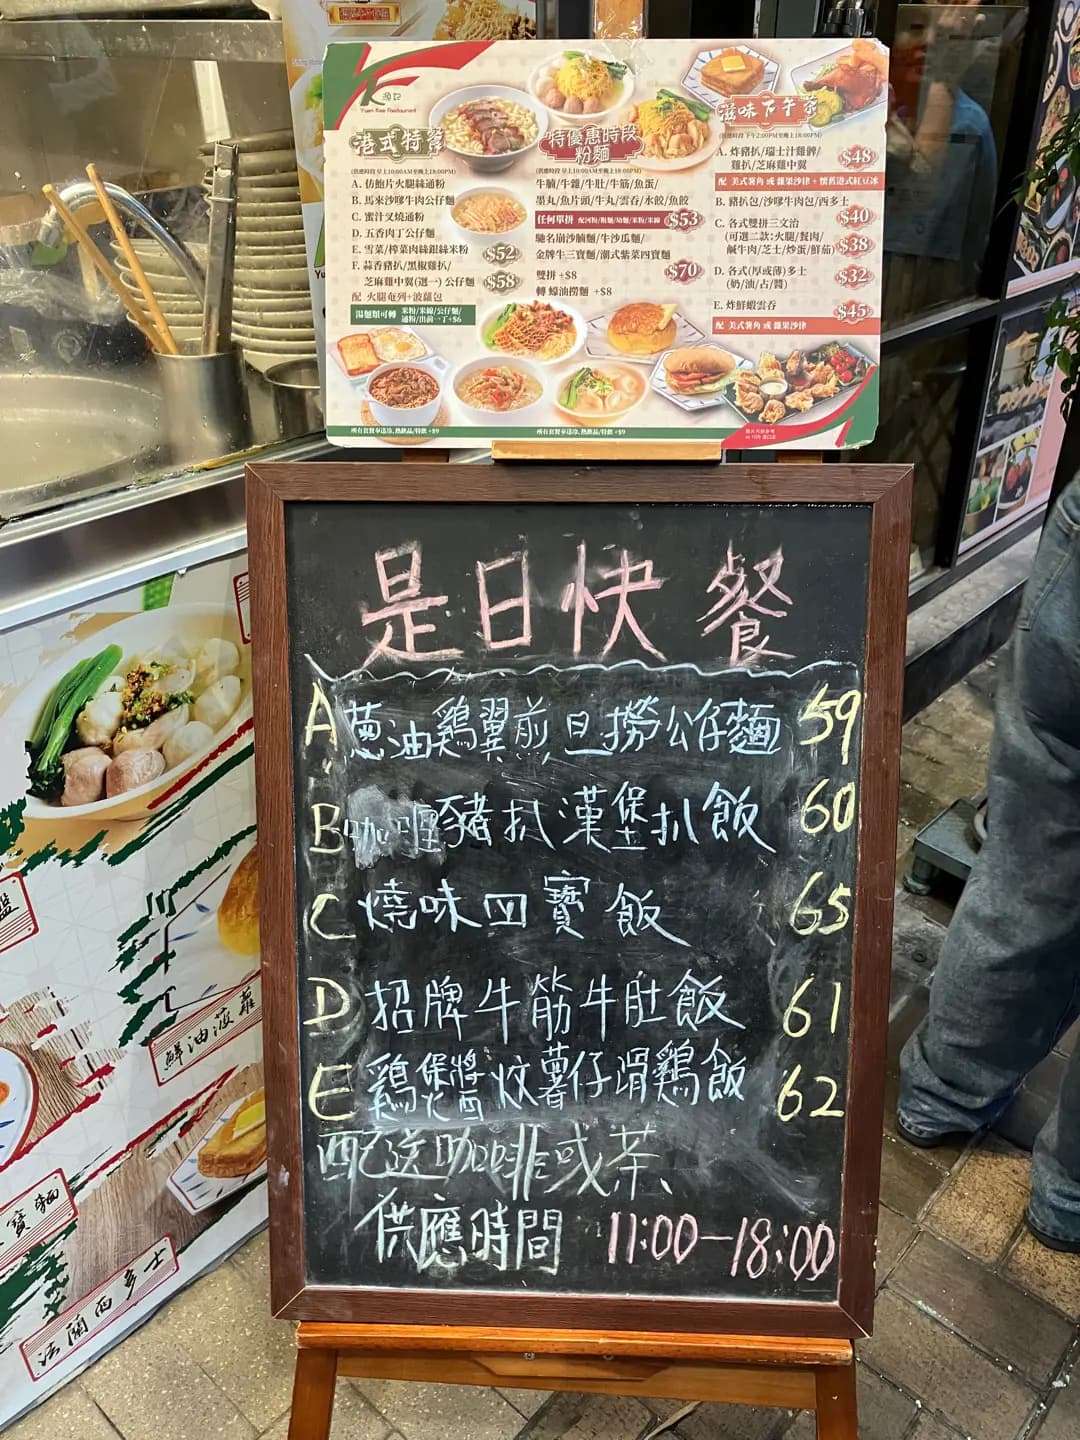 源記
Yuen Kee Restaurant
港式特餐
(供應時段 早上10:00AM至晚上18:00PM)
A. 仿鮑片火腿絲通粉
B. 馬來沙嗲牛肉公仔麵
C. 蜜汁叉燒通粉
D. 五香肉丁公仔麵
E. 雪菜/榨菜肉絲銀絲米粉 $52
F. 蒜香豬扒/黑椒雞扒/
芝麻雞中翼(選一) 公仔麵 $58
配 火腿奄列+菠蘿包
湯麵類可轉 米粉/米線/公仔麵/
通粉/出前一丁+$6
所有套餐奉送冷,熱飲品/特飲 +$9
特優惠時段
粉麵
(供應時段 早上10:00AM至晚上18:00PM)
牛腩/牛雜/牛肚/牛筋/魚蛋/
墨丸/魚片頭/牛丸/雲吞/水餃/魚餃
任何單拼 配河粉/粗麵/幼麵/米粉/米線 $53
馳名崩沙腩麵/牛沙瓜麵/
金牌牛三寶麵/潮式紫菜四寶麵
雙拼 +$8 $70
轉 蠔油撈麵 +$8
所有套餐奉送冷,熱飲品/特飲 +$9
滋味下午茶
(供應時段 下午2:00PM至晚上18:00PM)
A. 炸豬扒/瑞士汁雞髀/
雞扒/芝麻雞中翼 $48
配 美式薯角 或 雜果沙律 + 懷舊港式紅豆冰
B. 豬扒包/沙嗲牛肉包/西多士 $40
C. 各式雙拼三文治
(可選二款:火腿/餐肉/
鹹牛肉/芝士/炒蛋/鮮茄) $38
D. 各式(厚或薄)多士
(奶/油/占/醬) $32
E. 炸鮮蝦雲吞 $45
配 美式薯角 或 雜果沙律
圖片只供參考
是日快餐
A 蔥油鷄翼煎旦撈公仔麵 59
B 咖喱豬扒漢堡扒飯 60
C 燒味四寶飯 65
D 招牌牛筋牛肚飯 61
E 鷄煲將炆薯仔滑鷄飯 62
配送咖啡或茶、
供應時間 11:00—18:00
鮮油菠蘿
寶麵
法蘭西多士